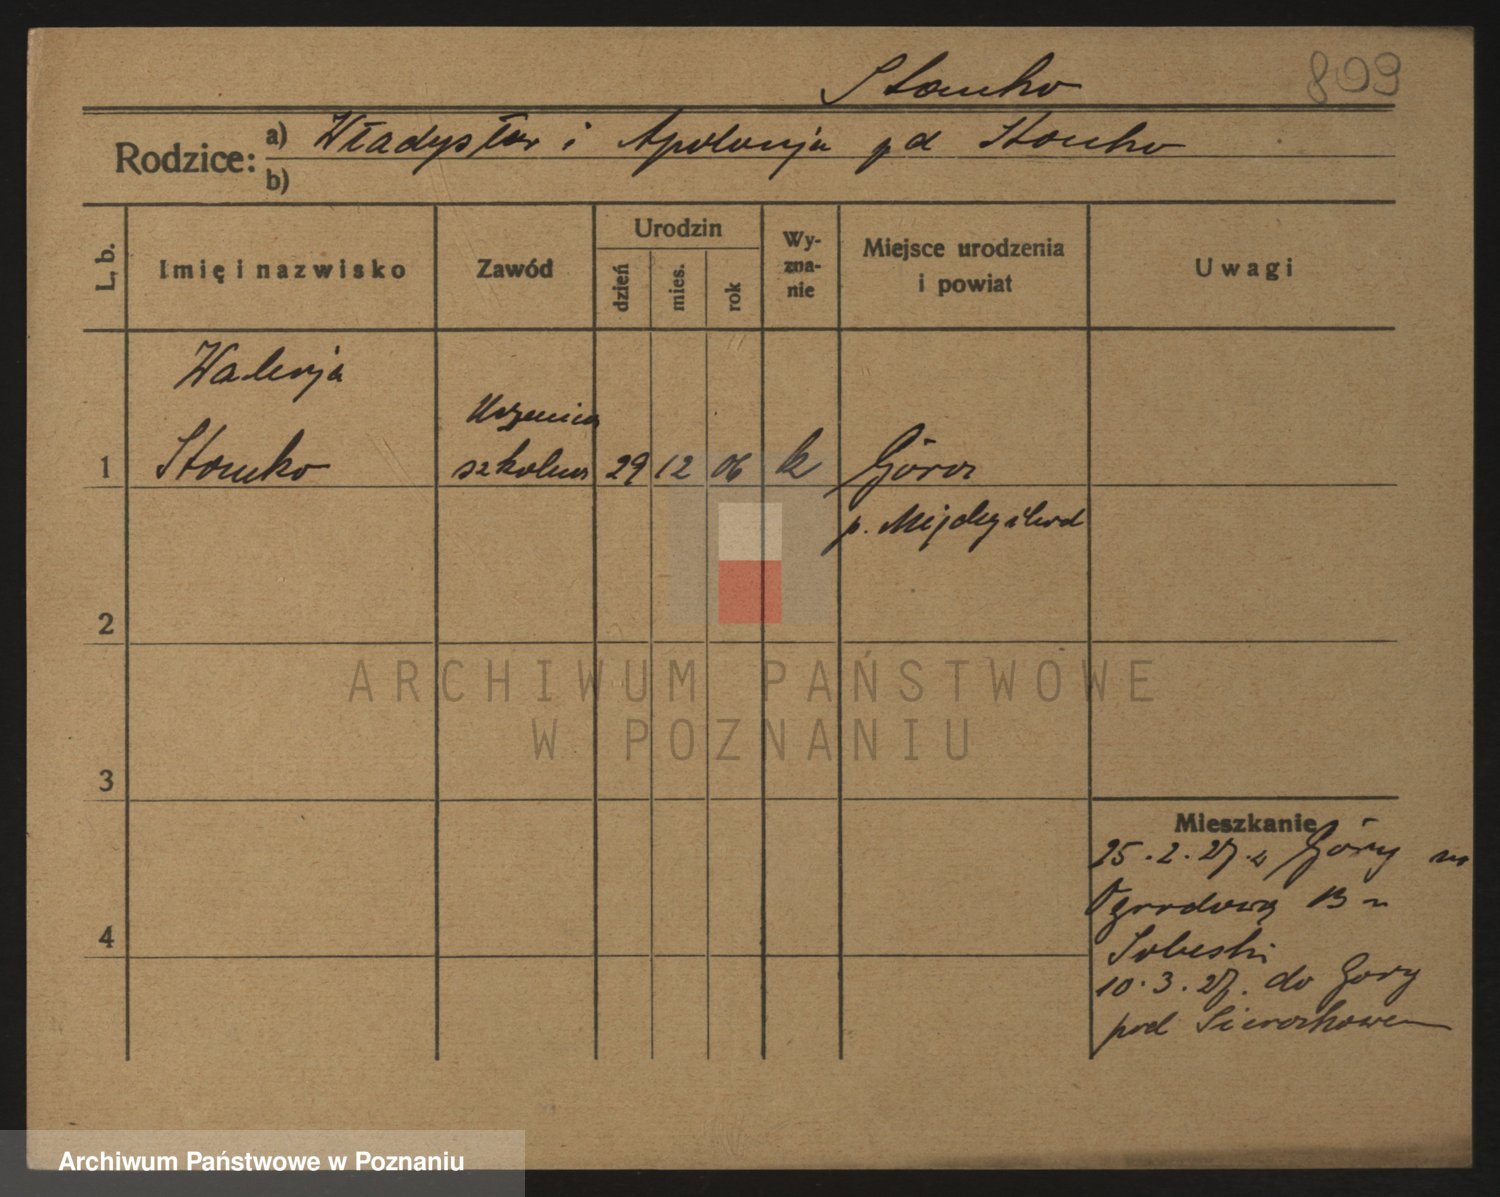 Stomko
809
Rodzice:
a) Władysław i Apolonja pd Stomko
b)
L. b.
Imię i nazwisko
Zawód
Urodzin
dzień
mies.
rok
Wy-
zna-
nie
Miejsce urodzenia
i powiat
Uwagi
Walerja
Uczenica
1 Stomko szkolna 29 12 06 k Góra
p. Międzychód
2
3
4
Mieszkanie
25.2.27. z Góry na
Ogrodową 13 u
Sobeski
10.3.27. do Góry
pod Sierakowem
ARCHIWUM PAŃSTWOWE
W POZNANIU
Archiwum Państwowe w Poznaniu